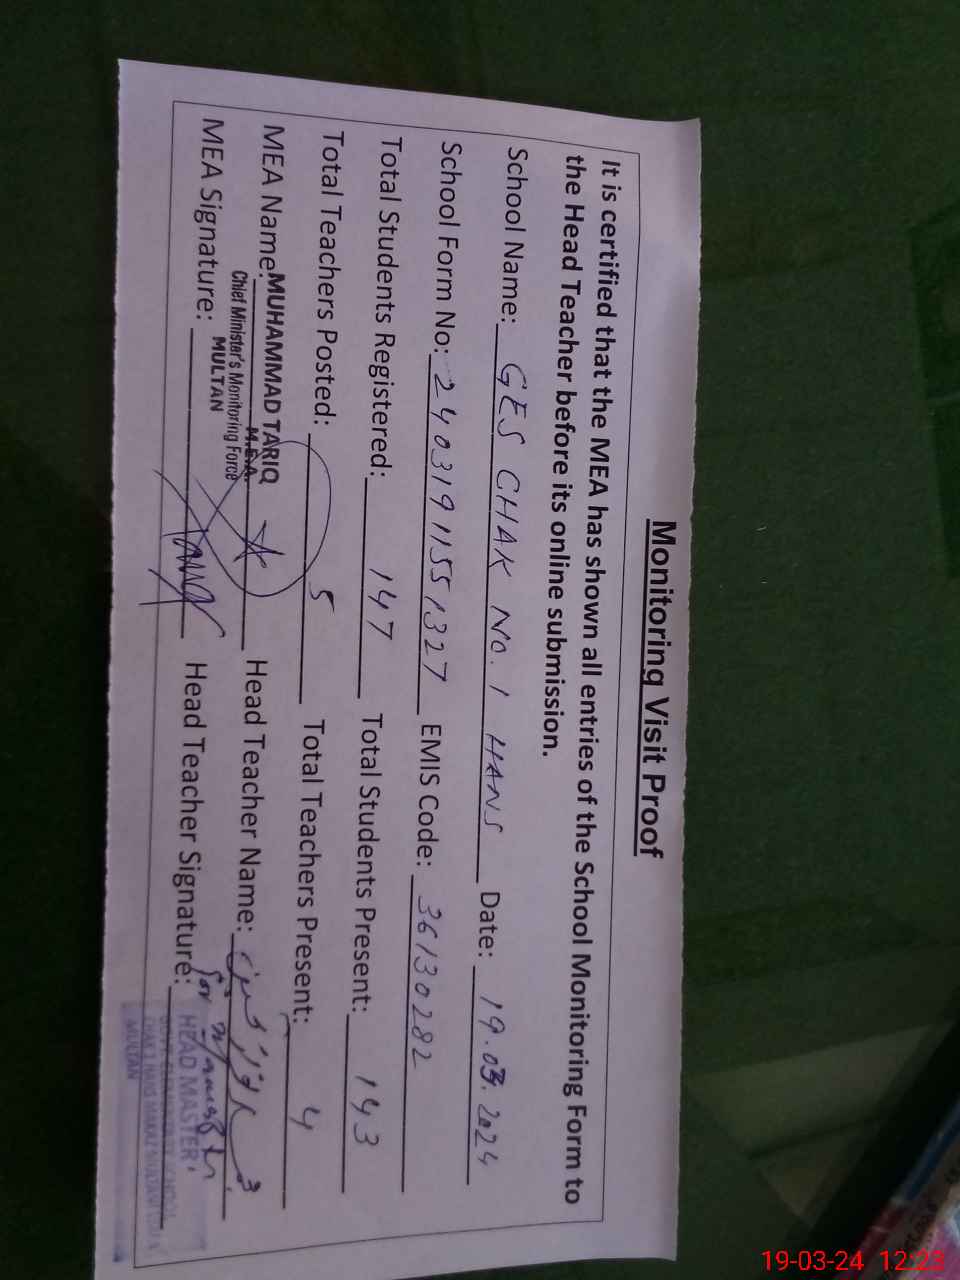 Monitoring Visit Proof
It is certified that the MEA has shown all entries of the School Monitoring Form to
the Head Teacher before its online submission.
School Name: GES CHAK NO. 1 HANS Date: 19.03.2024
School Form No: 24031911551327 EMIS Code: 36130282
Total Students Registered: 147 Total Students Present: 143
Total Teachers Posted: 5 Total Teachers Present: 4
MEA Name: MUHAMMAD TARIQ Head Teacher Name:
M.E.A.
Chief Minister's Monitoring Force
MULTAN
MEA Signature: Head Teacher Signature: for
HEAD MASTER
GOVT. ELEMENTARY SCHOOL
MULTAN
19-03-24 12:23